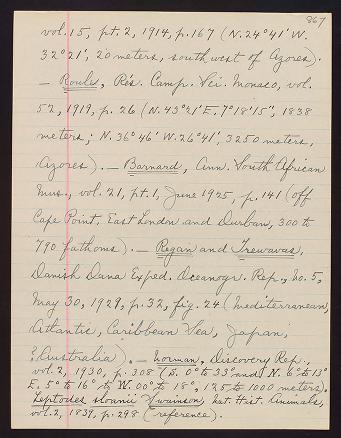 867
vol. 15, pt. 2, 1914, p. 167 (N. 24°41' W.
32°21', 20 meters, southwest of Azores).
— Roule, Rés. Camp. Sci. Monaco, vol.
52, 1919, p. 26 (N. 43°21' E. 7°18'15", 1838
meters; N. 36°46' W. 26°41', 3250 meters,
Azores). — Barnard, Ann. South African
Mus., vol. 21, pt. 1, June 1925, p. 141 (off
Cape Point, East London and Durban, 300 to
790 fathoms). — Regan and Trewavas,
Danish Dana Exped. Oceanogr. Rep., No. 5,
May 30, 1929, p. 32, fig. 24 (Mediterranean,
Atlantic, Caribbean Sea, Japan,
?Australia). — Norman, Discovery Rep.,
vol. 2, 1930, p. 308 (S. 0° to 33° and N. 6° to 13°
E. 5° to 16° to W. 00° to 18°, 125 to 1000 meters).
Leptodes sloanii Swainson, Nat. Hist. Animals,
vol. 2, 1839, p. 298 (reference).